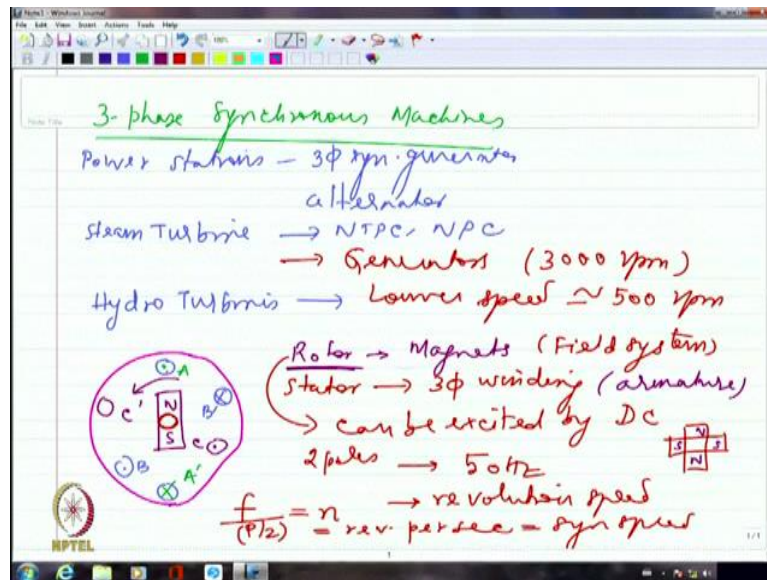 Note1 - Windows Journal
File Edit View Insert Actions Tools Help
100%
B I
Note Title
3-phase Synchronous Machines
Power Stations - 3ϕ syn. generator
alternator
Steam Turbine → NTPC, NPC
→ Generators (3000 rpm)
Hydro Turbines → Lower speed ≃ 500 rpm
Rotor → Magnets (Field system)
Stator → 3ϕ winding (armature)
→ can be excited by DC
2 poles → 50 Hz
A
C' N B'
S C
B A'
N
S S
N
f/(P/2) = n → revolution speed
= rev. per sec = syn speed
NPTEL
1/1
1